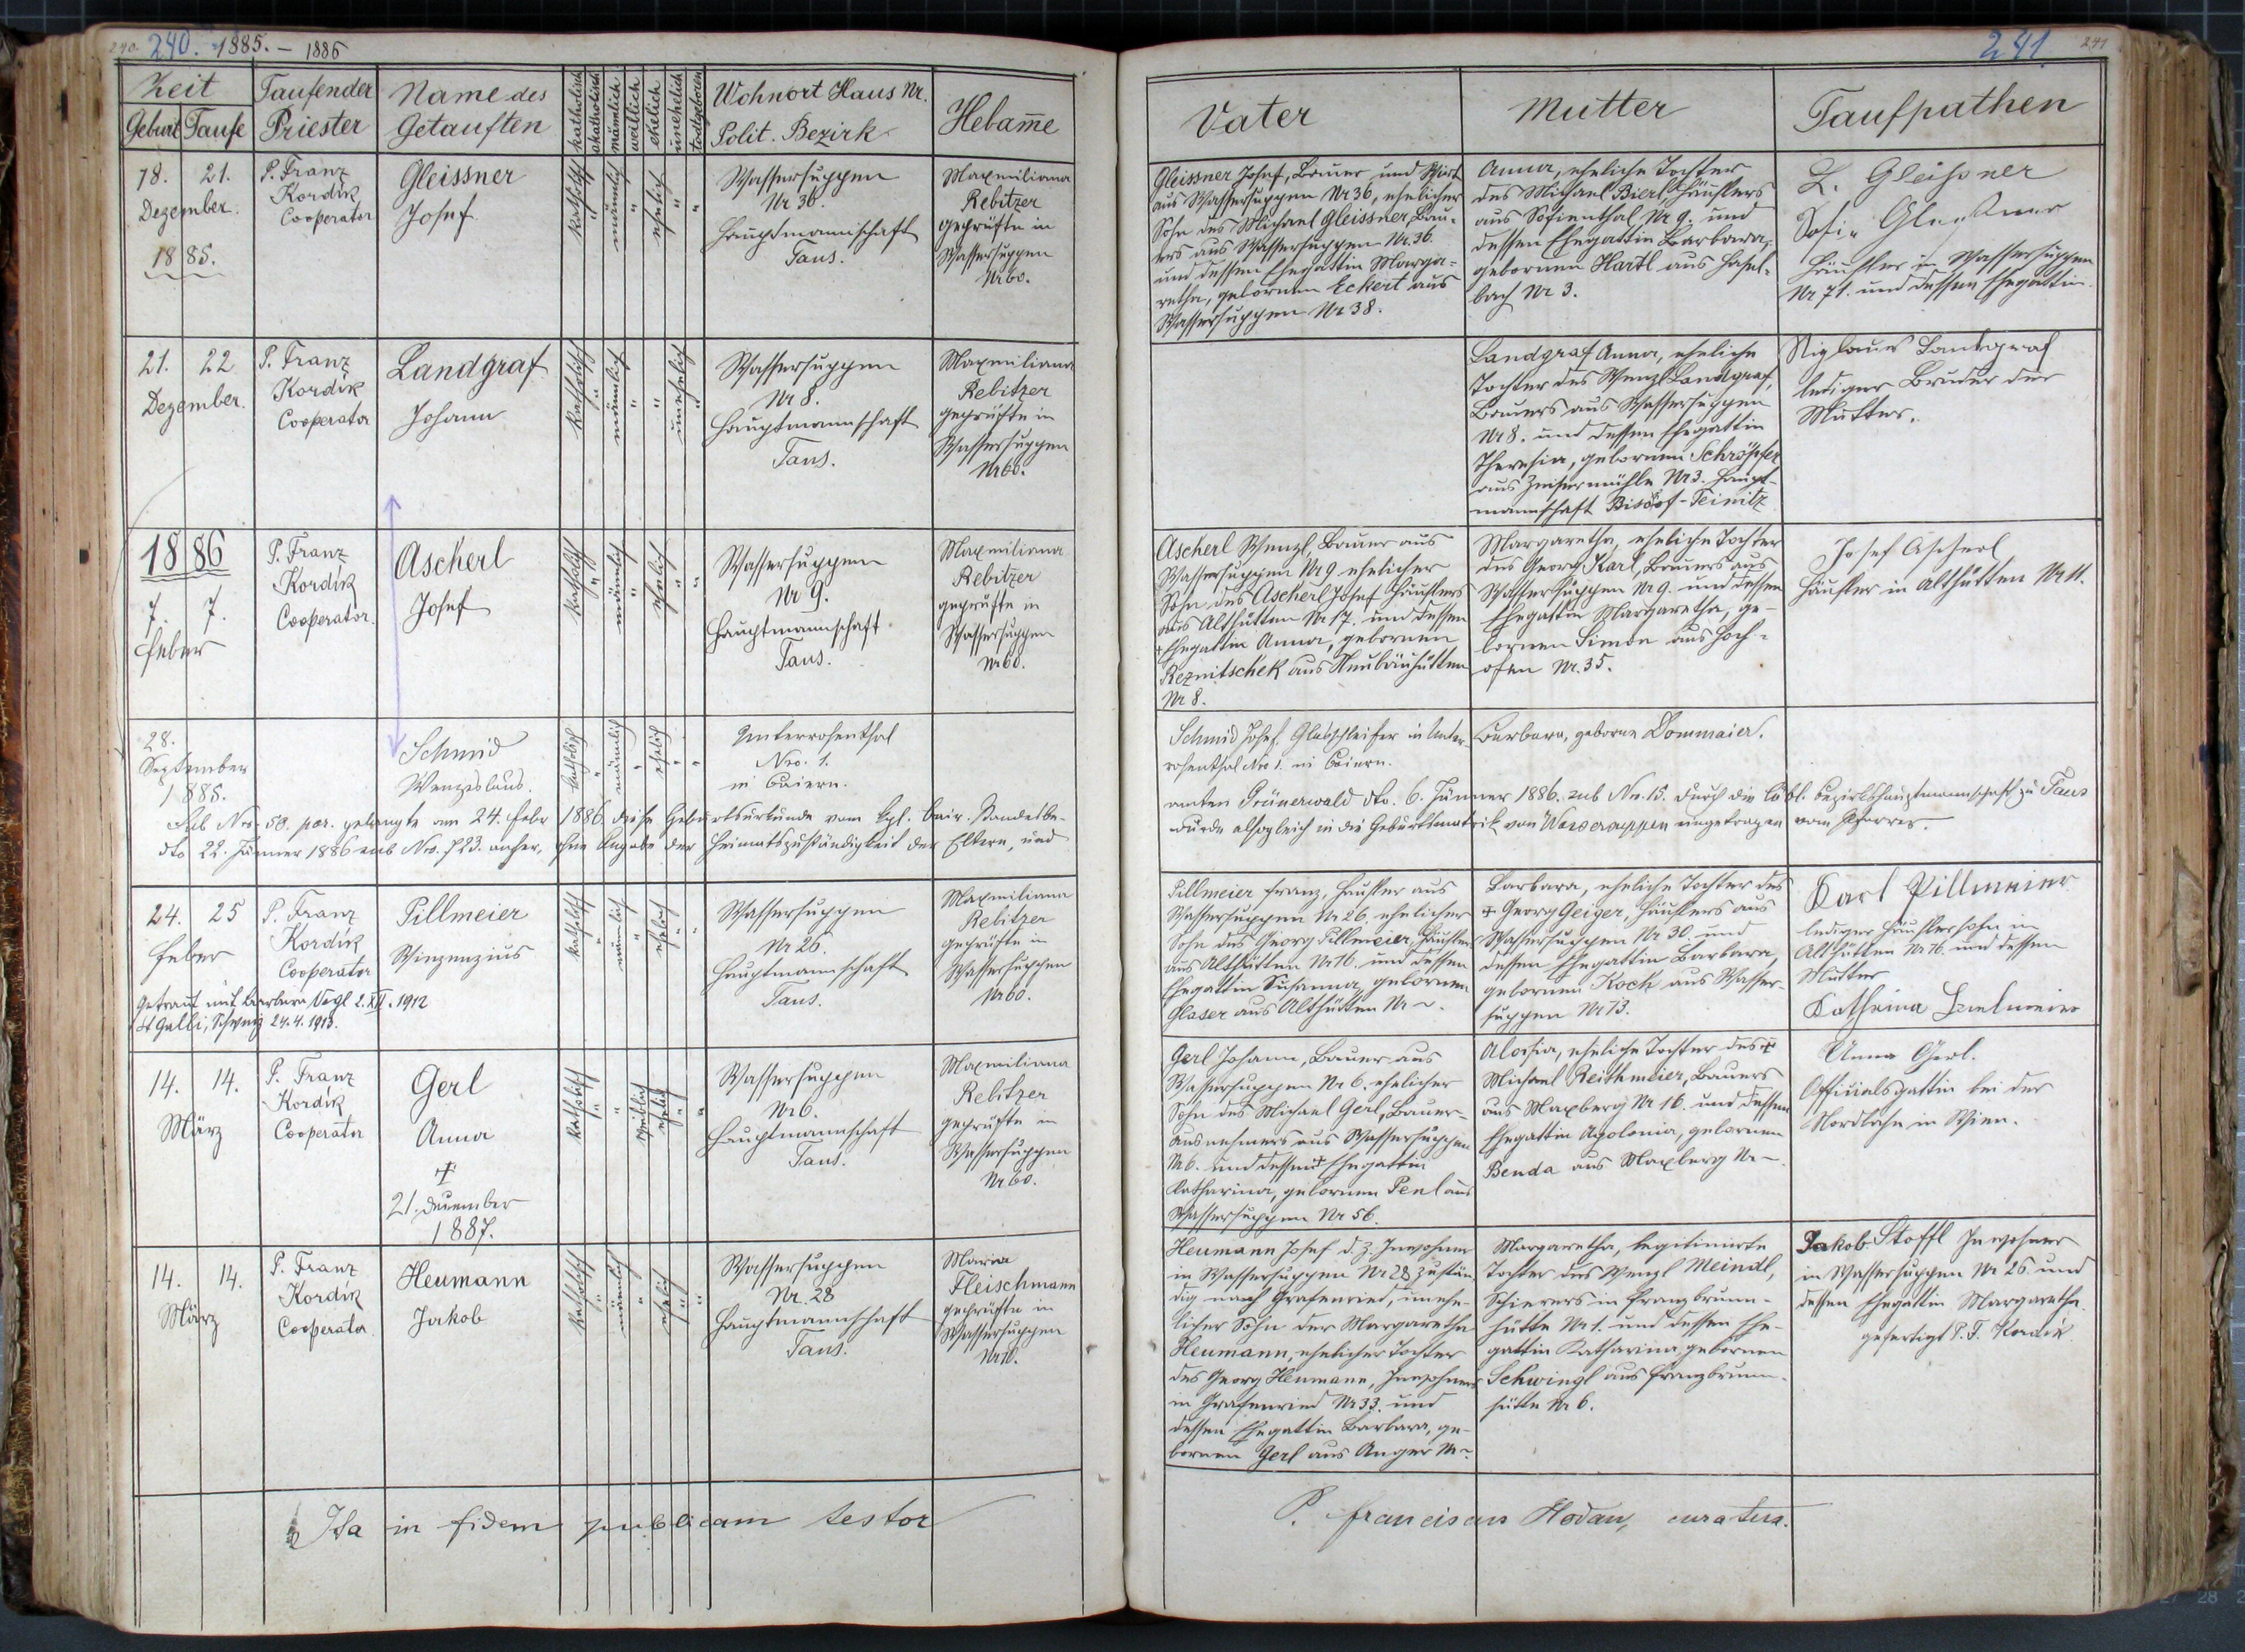 240. 240. 1885. – 1886
Zeit
Geburt Taufe
Taufender
Priester
Name des
Getauften
katholisch
akatholisch
männlich
weiblich
ehelich
unehelich
todtgeboren
Wohnort Haus Nr.
Polit. Bezirk
Hebam̅e
18. 21.
Dezember.
1885.
P. Franz
Kordik
Cooperator
Gleissner
Josef
katholisch
"
männlich
"
ehelich
"
"
Wassersuppen
Nr 36.
Hauptmannschaft
Taus.
Maxmiliana
Rebitzer
geprüfte in
Wassersuppen
Nr 60.
21. 22
Dezember.
P. Franz
Kordik
Cooperator
Landgraf
Johann
katholisch
"
männlich
"
"
unehelich
"
Wassersuppen
Nr 8.
Hauptmannschaft
Taus.
Maxmiliana
Rebitzer
geprüfte in
Wassersuppen
Nr 60.
1886
7. 7.
Feber
P. Franz
Kordik
Cooperator.
Ascherl
Josef
katholisch
"
männlich
"
ehelich
"
"
Wassersuppen
Nr 9.
Hauptmannschaft
Taus.
Maxmiliana
Rebitzer
geprüfte in
Wassersuppen
Nr 60.
28.
September
1885.
Schmid
Wenzeslaus.
katholisch
"
männlich
"
ehelich
"
"
Unterrosenthal
Nro. 1.
in Baiern.
Sub Nro. 50. par. gelangte am 24. Feber 1886 diese Geburtsurkunde vom kgl. bair. Standesbe-
dto 22. Jänner 1886 sub Nro. 723. anher, ohne Angabe der Heimatszuständigkeit der Eltern, und
24. 25
Feber
P. Franz
Kordik
Cooperator
Pillmeier
Vinzenzius
katholisch
"
männlich
"
ehelich
"
"
Wassersuppen
Nr 26.
Hauptmannschaft
Taus.
Maxmiliana
Rebitzer
geprüfte in
Wassersuppen
Nr 60.
Getraut mit Barbara Vogl 2. XII. 1912
St Galli, Schweiz 24.4.1913.
14. 14.
März
P. Franz
Kordik
Cooperator
Gerl
Anna
†
21. Dezember
1887.
katholisch
"
"
weiblich
ehelich
"
"
Wassersuppen
Nr 6.
Hauptmannschaft
Taus.
Maxmiliana
Rebitzer
geprüfte in
Wassersuppen
Nr 60.
14. 14.
März
P. Franz
Kordik
Cooperator.
Heumann
Jakob
katholisch
"
männlich
"
ehelich
"
"
Wassersuppen
Nr. 28
Hauptmannschaft
Taus.
Maria
Fleischmann
geprüfte in
Wassersuppen
Nr 10.
Ita in fidem publicam testor
241 241
Vater
Mutter
Taufpathen
Gleissner Josef, Bauer und Wirt
aus Wassersuppen Nr 36, ehelicher
Sohn des Michael Gleissner, Bau-
ers aus Wassersuppen Nr. 36.
und dessen Ehegattin Marga-
retha, gebornen Eckert aus
Wassersuppen Nr 38.
Anna, eheliche Tochter
des Michael Bierl, Häuslers
aus Sofienthal Nr 9. und
dessen Ehegattin Barbara,
gebornen Hartl aus Hasel-
bach Nr 3.
L. Gleißner
Sofie Gleißner
Häusler in Wassersuppen
Nr 71. und dessen Ehegattin
Landgraf Anna, eheliche
Tochter des Wenzl Landgraf,
Bauers aus Wassersuppen
Nr 8. und dessen Ehegattin
Theresia, gebornen Schröpfer
aus Zeisermühle Nr 3. Haupt-
mannschaft Bischof-Teinitz
Niglaus Landgraf
lediger Bruder der
Mutter.
Ascherl Wenzl, Bauer aus
Wassersuppen Nr 9 ehelicher
Sohn des Ascherl Josef Häuslers
aus Althütten Nr 17. und dessen
† Ehegattin Anna, gebornen
Reznitschek aus Neubäuhütten
Nr 8.
Margaretha, eheliche Tochter
des Georg Karl, Bauers aus
Wassersuppen Nr 9. und dessen
Ehegattin Margaretha, ge-
bornen Simon aus Hoch-
ofen Nr. 35.
Josef Ascherl
Häusler in Althütten Nr 11.
Schmid Josef, Glasschleifer in Unter-
rosenthal Nro 1. in Baiern.
Barbara, geborne Dommaier.
amten Grünerwald dto. 6. Jänner 1886. sub No. 15. durch die löbl. Bezirkshauptmannschaft zu Taus
wurde alsogleich in die Geburtsmatrik von Wassersuppen eingetragen vom Pfarrer.
Pillmeier Franz, Häusler aus
Wassersuppen Nr 26. ehelicher
Sohn des Georg Pillmeier, Häuslers
aus Althütten Nr 16. und dessen
Ehegattin Susanna, gebornen
Glaser aus Althütten Nr ~.
Barbara, eheliche Tochter des
† Georg Geiger, Häuslers aus
Wassersuppen Nr 30. und
dessen Ehegattin Barbara,
gebornen Koch aus Wasser-
suppen Nr 13.
Karl Pillmeier
lediger Häuslerssohn in
Althütten Nr 16 und dessen
Mutter
Katharina
Gerl Johann, Bauer aus
Wassersuppen Nr 6. ehelicher
Sohn des Michael Gerl, Bauer-
Ausnehmers aus Wassersuppen
Nr 6. und dessen † Ehegattin
Katharina, gebornen Penl aus
Wassersuppen Nr 56.
Aloisia, eheliche Tochter des †
Michael Reithmeier, Bauers
aus Maxberg Nr 16. und dessen
Ehegattin Apolonia, gebornen
Benda aus Maxberg Nr –
Anna Gerl.
Officialsgattin bei der
Nordbahn in Wien.
Heumann Josef d. Z. Inwohner
in Wassersuppen Nr 28 zustän-
dig nach Grafenried, unehe-
licher Sohn der Margaretha
Heumann, ehelicher Tochter
des Georg Heumann, Inwohners
in Grafenried Nr 33. und
dessen Ehegattin Barbara, ge-
bornen Gerl aus Anger Nr ~
Margaretha, legitimirte
Tochter des Wenzl Meindl,
Schierers in Franzbrunn-
hütte Nr 1. und dessen Ehe-
gattin Katharina, gebornen
Schwingl aus Franzbrunn-
hütte Nr 6.
Jakob Stoffl Inwohner
in Wassersuppen Nr 26 und
dessen Ehegattin Margaretha.
gefertigt P. F. Kordik
P. Franciscus Hodan, curatus.